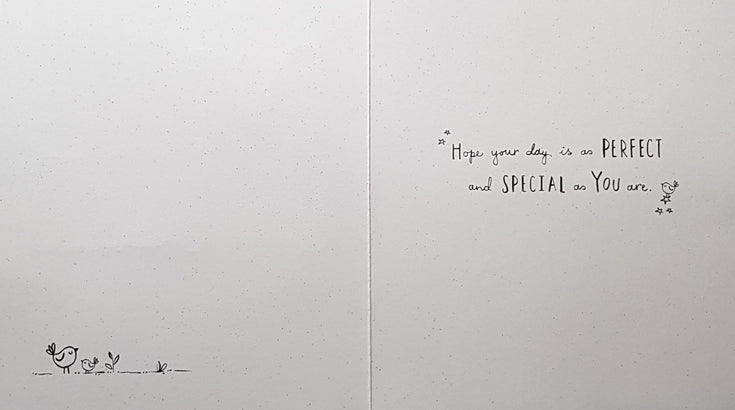 Hope your day is as PERFECT
and SPECIAL as YOU are.